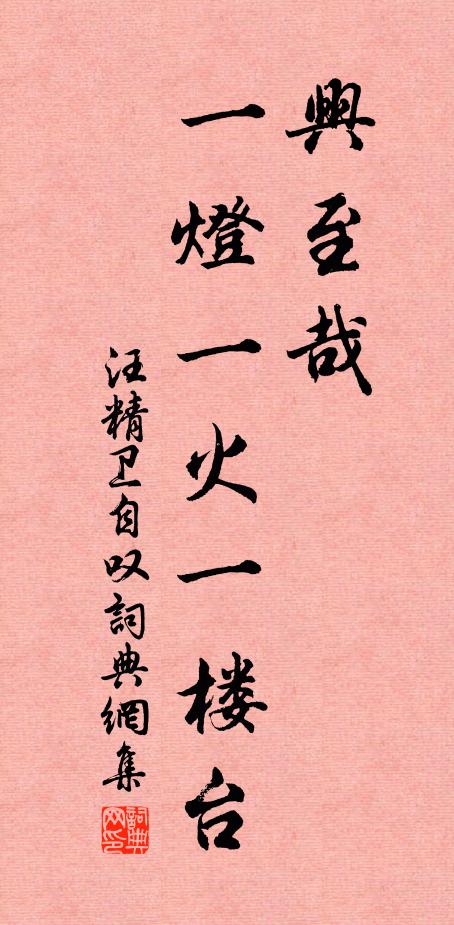 興至哉
一燈一火一楼台
汪精卫自叹詞典網集
詞典网印